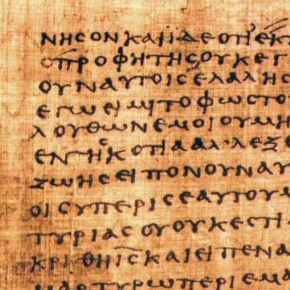 ΝΗϹΟΝΚΑΙΪΔΕΟΤΙΕΚ
ΟΠΡΟΦΗΤΗϹΟΥΚΕΓ
ΟΥΝΑΥΤΟΙϹΕΛΑΛΗϹ
ΕΓΩΕΙΜΙΤΟΦΩϹΤΟΥ
ΛΟΥΘΩΝΕΜΟΙΟΥΜΗ
ΕΝΤΗϹΚΟΤΙΑΑΛΛΕΞΕ
ΖΩΗϹΕΙΠΟΝΟΥΝΑΥ
ΟΙϹΥΠΕΡΙϹΕΑΥΤΟΥΜ
ΤΥΡΙΑϹΟΥΟΥΚΕϹΤΙ
ΚΡΙΘΗΙϹ̅ΚΑΙΕΙΠΕΝΑ
ΜΑΡΤΥΡΩΠΕΡΙΕΜΑ